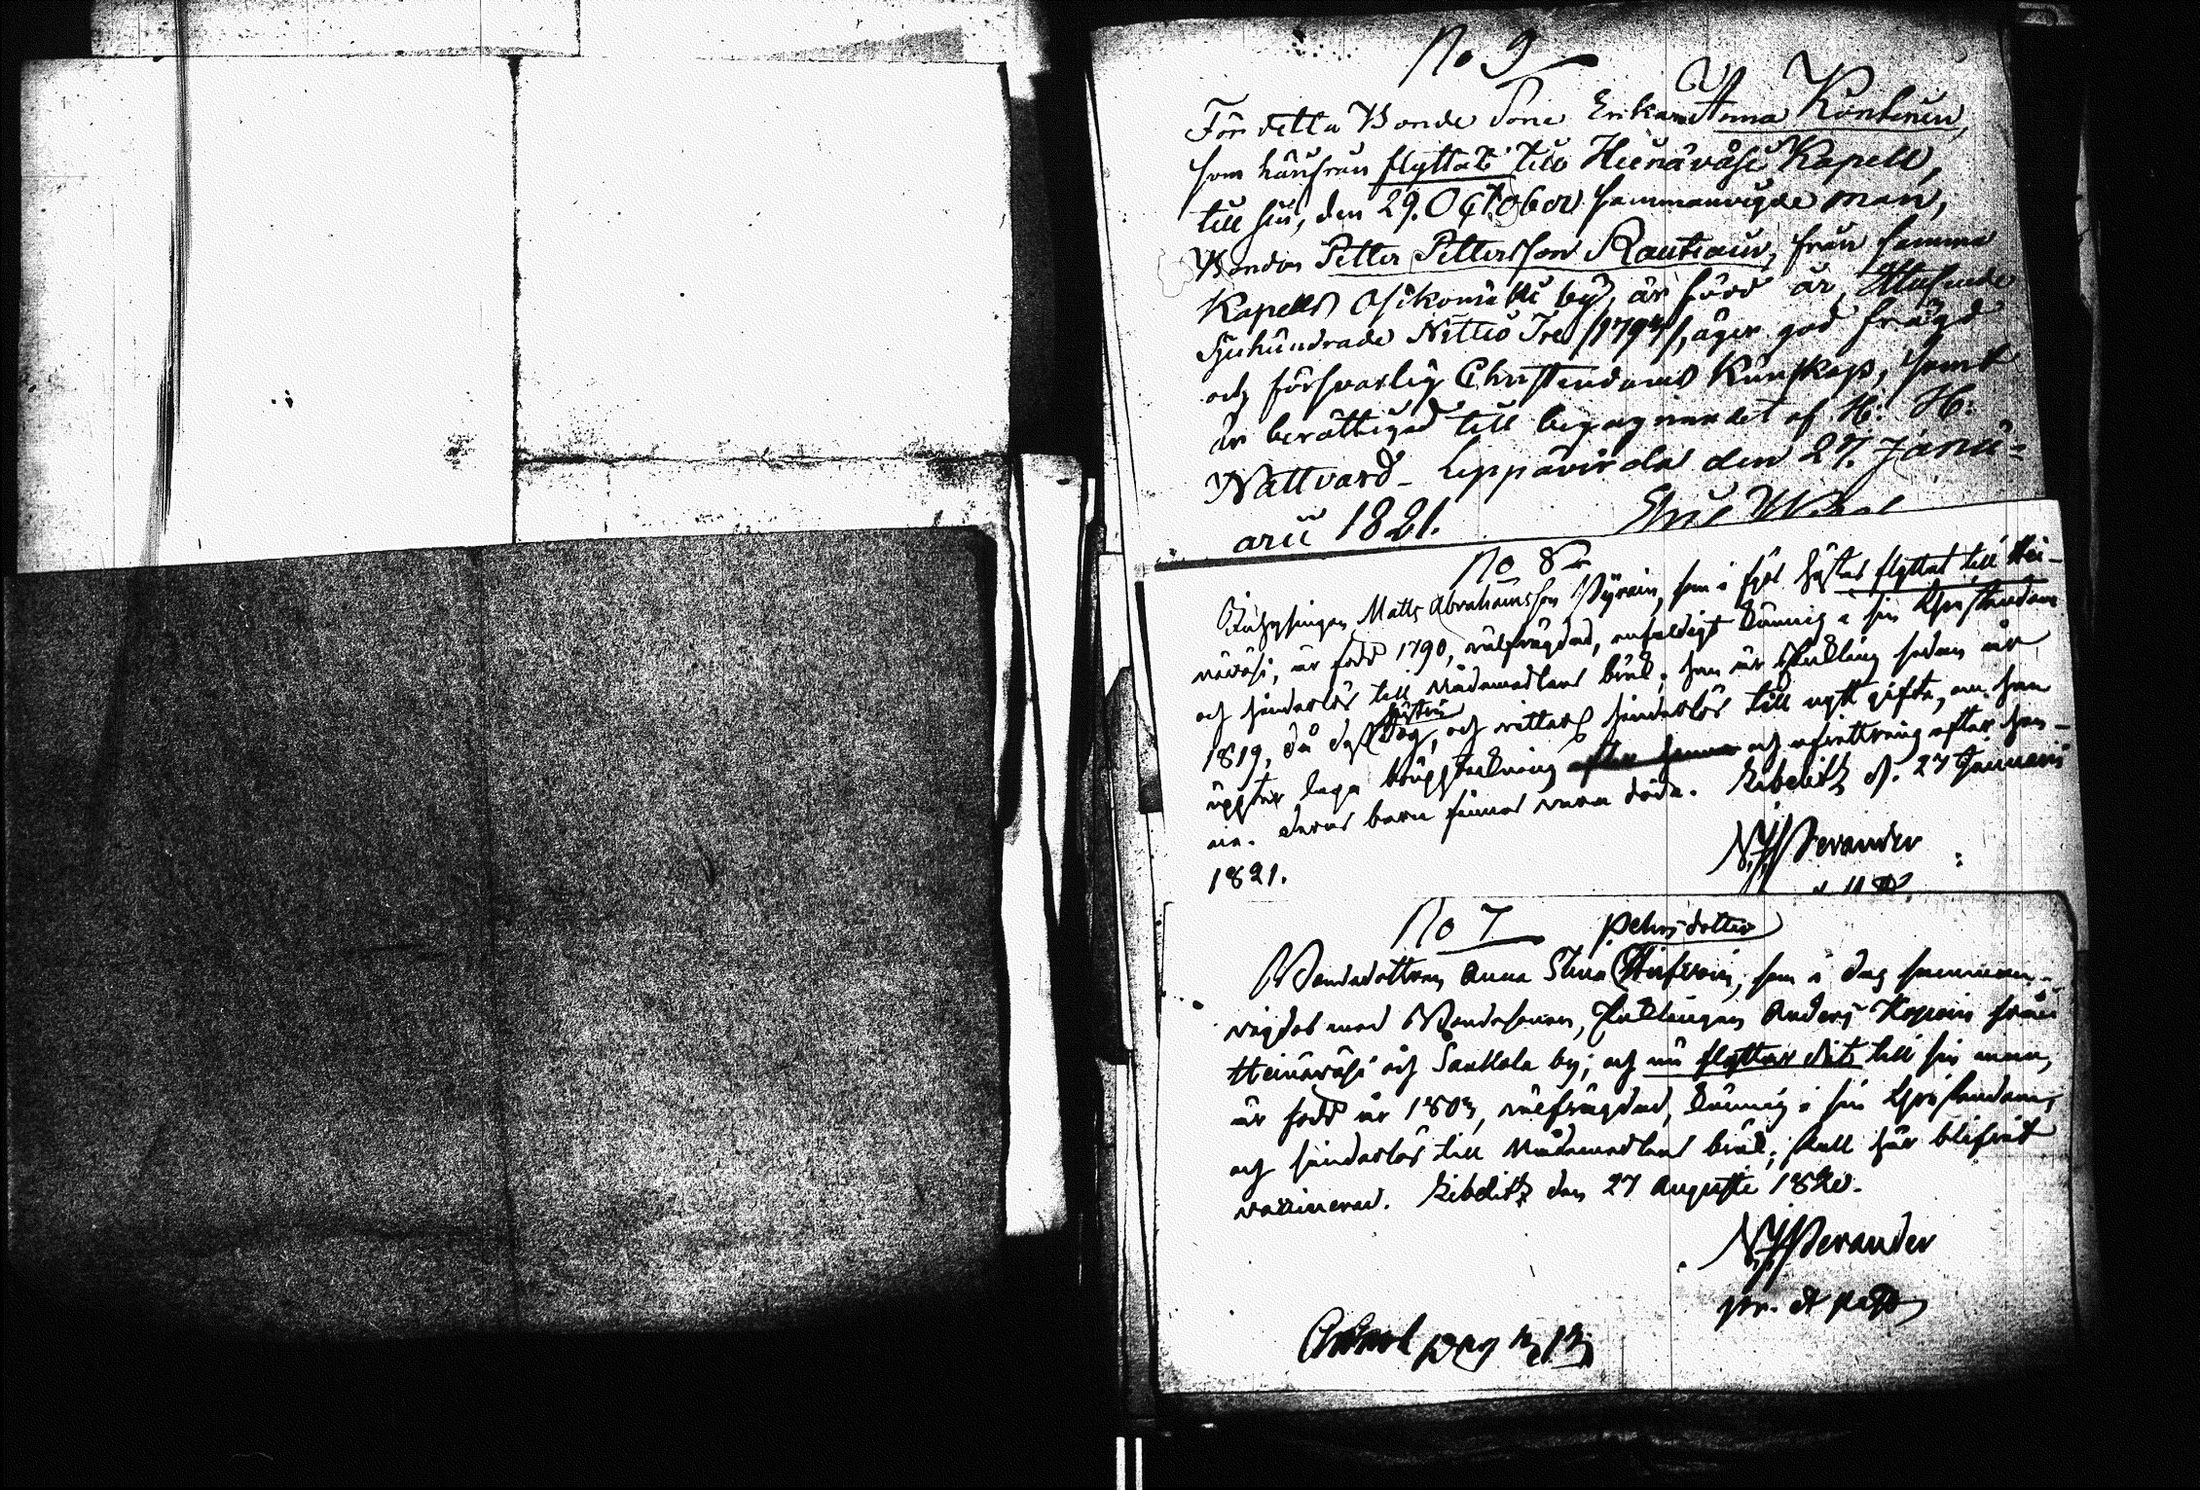 No 9
För detta Bonde Pone Erika Anna Kontinen,
som härifrån flyttat till Heinävåsi Kapell,
till sin, den 29. October sammanvigde man,
Bonden Petter Pettersson Rautiain, från samma
Kapells Asikomäki by, är född år Ettusende
Sjuhundrade Nittio Tre /1793/, äger god frägd
och försvarlig Christendoms Kunskap, samt
är berättigad till begagnandet af H: H:
Nattvard. Leppävirda den 27. Janu-
arii 1821.
No 8
Inhysingen Matts Abrahamsson Pyrain, som i fjol höstas flyttat till Hei-
näväsi, är född 1790, välfrägdad, enfaldigt kunnig i sin Christendom
och hinderlös till Nådemedlens bruk; han är Enkling sedan år
1819, då dess hustru dog, och vittras hinderlös till nytt gifte, om han
uppter laga bouppteckning och afvittring efter hen-
ne. deras barn finnas vara döda. Libelitz d. 27 Januarii
1821.
N. J. Perander
No 7 Pehrsdotter
Bondedottren Anna Stina Hirfvoin, som i dag samman-
vigdes med Bondesonen, Enklingen Anders Kopoin från
Heinäväsi och Sarkola by; och nu flyttar dit till sin man,
är född år 1803, välfrägdad, kunnig i sin Christendom,
och hinderlös till Nådemedlens bruk; skall här blifvit
vaccinerad. Libelitz den 27 Augusti 1820.
N. J. Perander
pr. & past